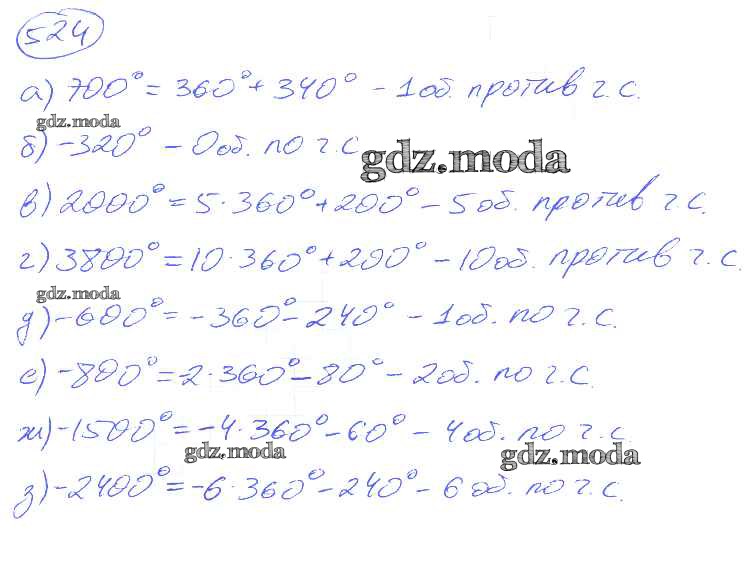 524
а) 700° = 360° + 340° - 1 об. против ч.с.
gdz.moda
б) -320° - 0 об. по ч.с.
gdz.moda
в) 2000° = 5·360° + 200° - 5 об. против ч.с.
г) 3800° = 10·360° + 200° - 10 об. против ч.с.
gdz.moda
д) -600° = -360° - 240° - 1 об. по ч.с.
е) -800° = -2·360° - 80° - 2 об. по ч.с.
ж) -1500° = -4·360° - 60° - 4 об. по ч.с.
gdz.moda
gdz.moda
з) -2400° = -6·360° - 240° - 6 об. по ч.с.